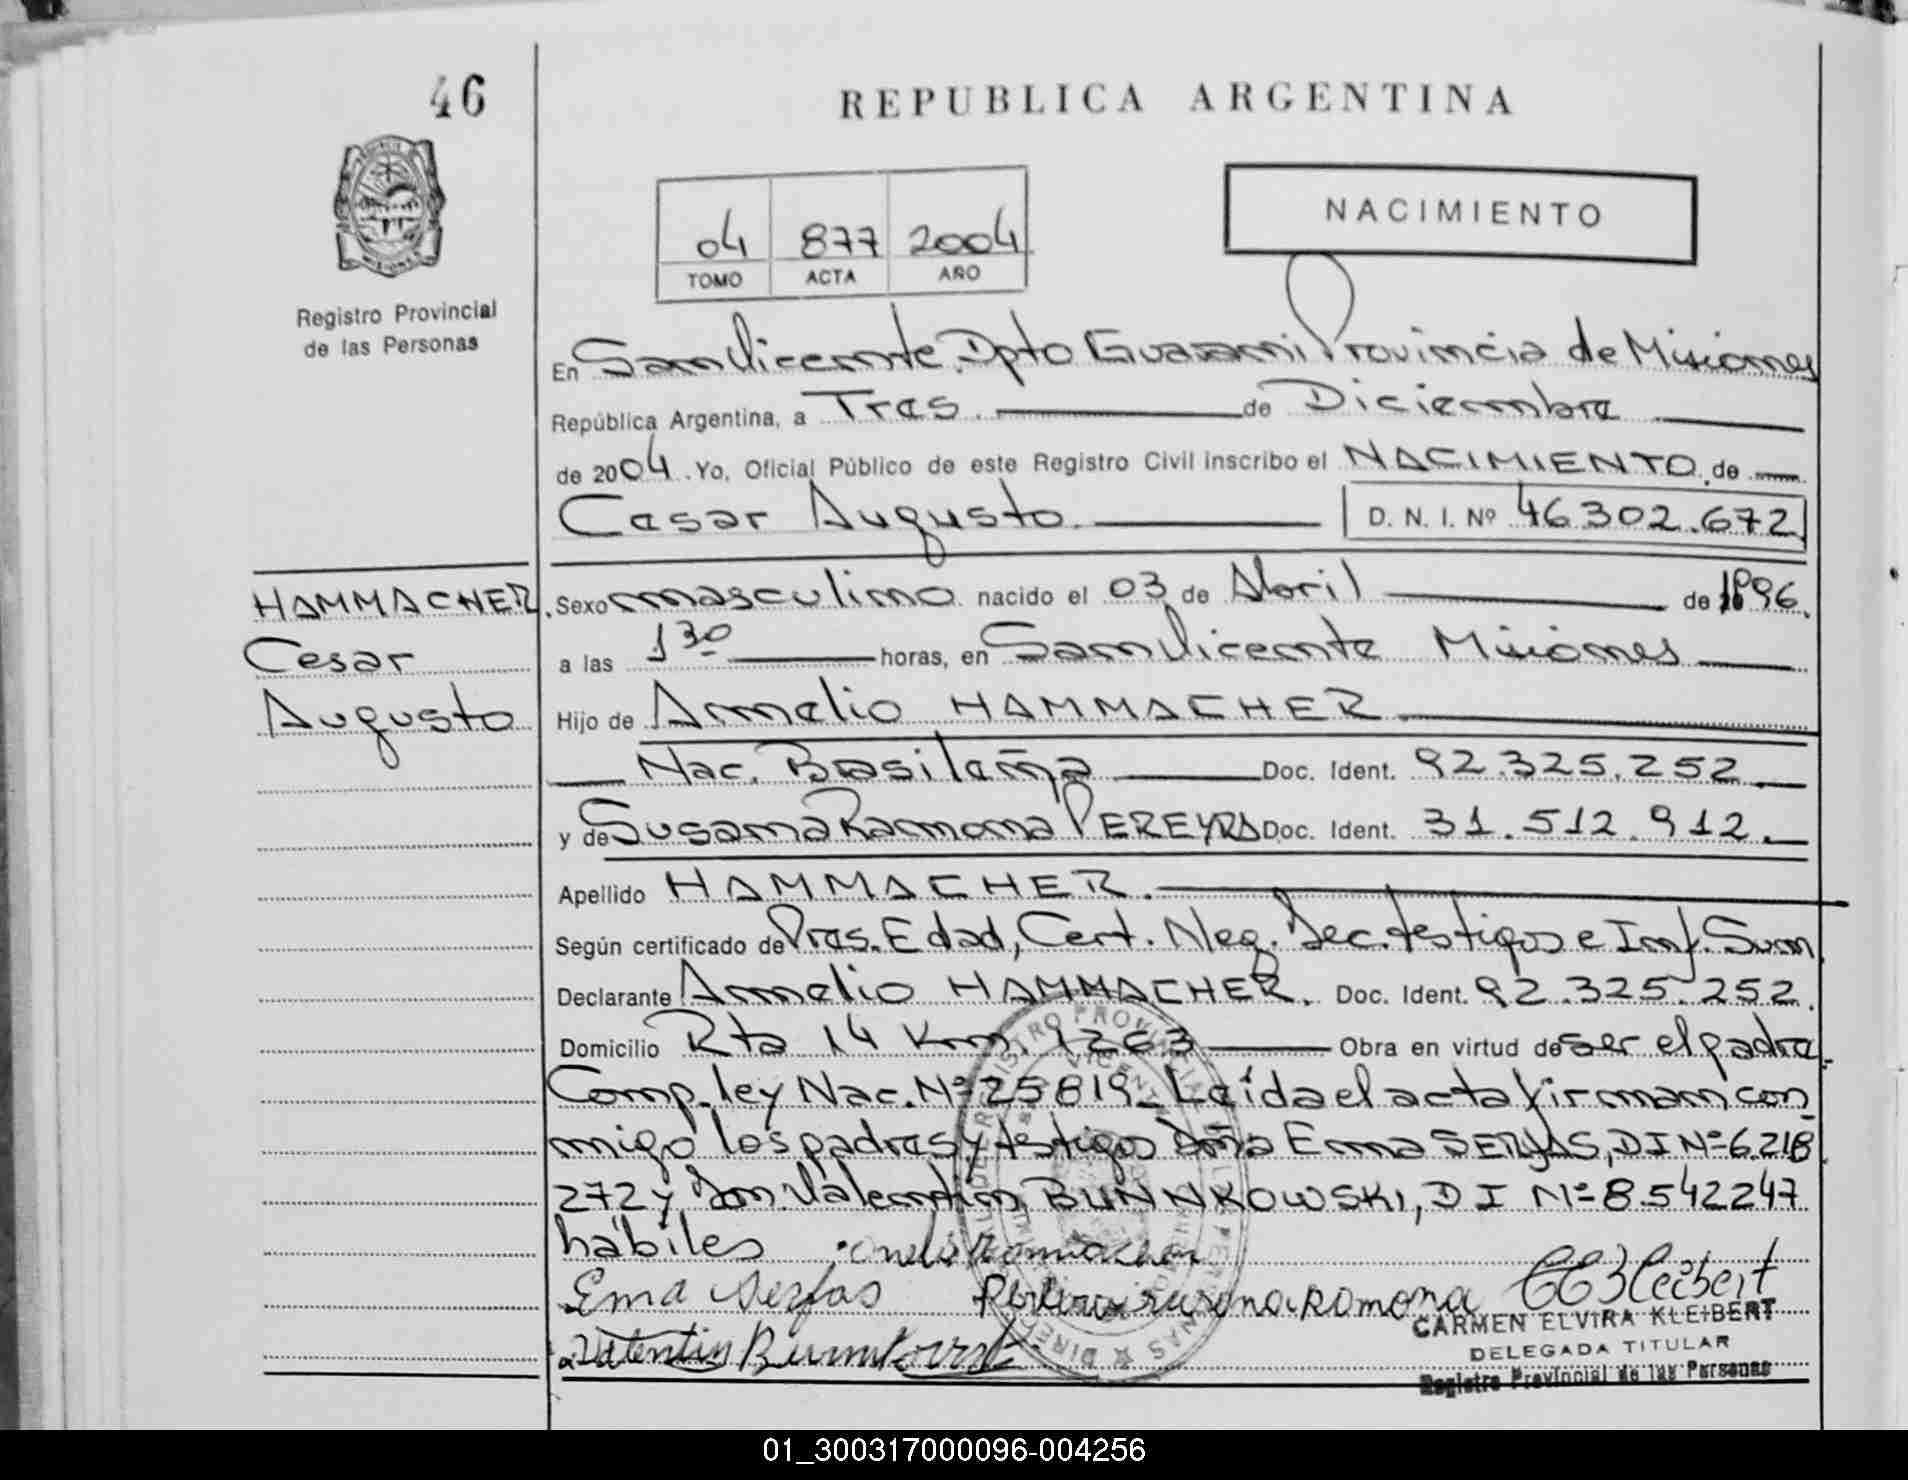 46
REPUBLICA ARGENTINA
Registro Provincial
de las Personas
04 877 2004
TOMO ACTA AÑO
NACIMIENTO
En San Vicente, Dpto Guarani Provincia de Misiones
República Argentina, a Tres. de Diciembre
de 2004. Yo, Oficial Público de este Registro Civil inscribo el NACIMIENTO, de
Cesar Augusto. D. N. I. Nº 46.302.672
HAMMACHER
Cesar
Augusto
Sexo masculino nacido el 03 de Abril de 1996.
a las 1 30 horas, en San Vicente Misiones
Hijo de Arnelio HAMMACHER.
Nac. Brasileña Doc. Ident. 92.325.252
y de Susana Ramona PEREYRA Doc. Ident. 31.512.912.
Apellido HAMMACHER.
Según certificado de Pres. Edad, Cert. Neg. Dec. testigos e Inf. Sum
Declarante Arnelio HAMMACHER. Doc. Ident. 92.325.252.
Domicilio Rta 14 Km. 1263 Obra en virtud de ser el padre.
Comp. ley Nac. Nº 25819_ Leída el acta firman con_
migo los padres y testigos Dña Ema SERFAS, DI Nº 6.218
272 y Don Valentin BUNNKOWSKI, D I Nº 8.542247
hábiles
Ema Serfas Pereira susana Ramona CEKleibert
CARMEN ELVIRA KLEIBERT
DELEGADA TITULAR
Registro Provincial de las Personas
Valentin
01_300317000096-004256